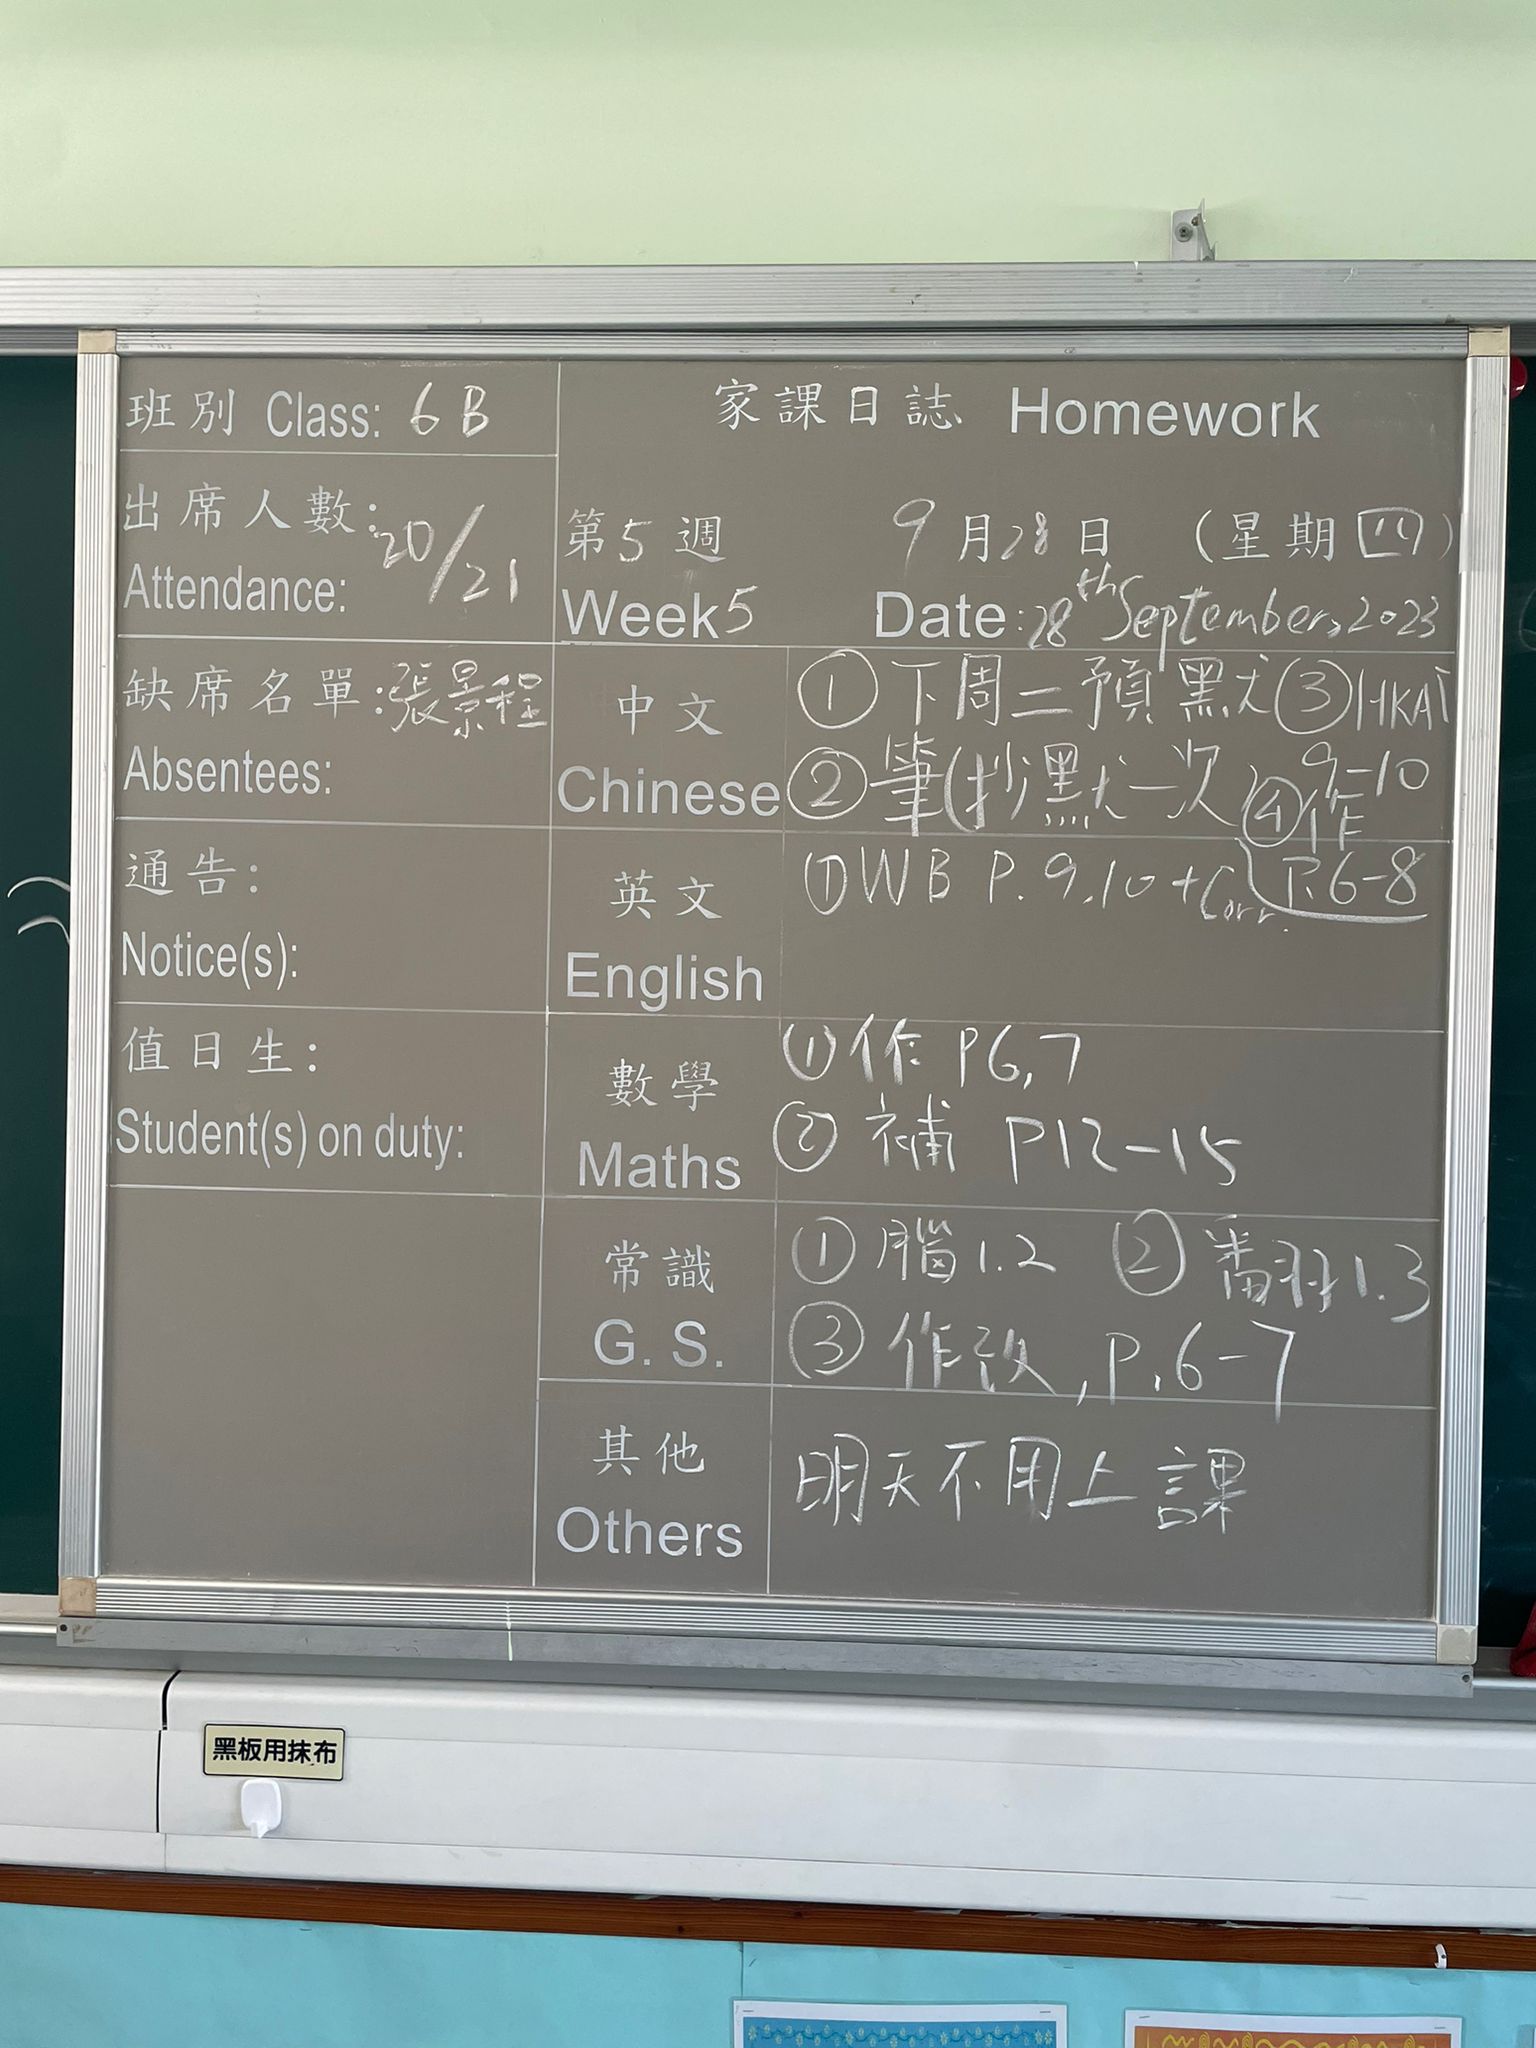 班別 Class: 6B
家課日誌 Homework
出席人數: 20/21
Attendance:
第5週 9月28日 (星期四)
Week5 Date: 28th September, 2023
缺席名單: 張景程
Absentees:
中文
Chinese
① 下周二預默 ③ HKAT
9-10
② 筆(抄默一次) ④ 作
P.6-8
通告:
Notice(s):
英文
English
① WB P.9,10 + Corr.
值日生:
Student(s) on duty:
數學
Maths
① 作 P6,7
② 補 P12-15
常識
G. S.
① 腦1.2 ② 翻1.3
③ 作改, P.6-7
其他
Others
明天不用上課
黑板用抹布